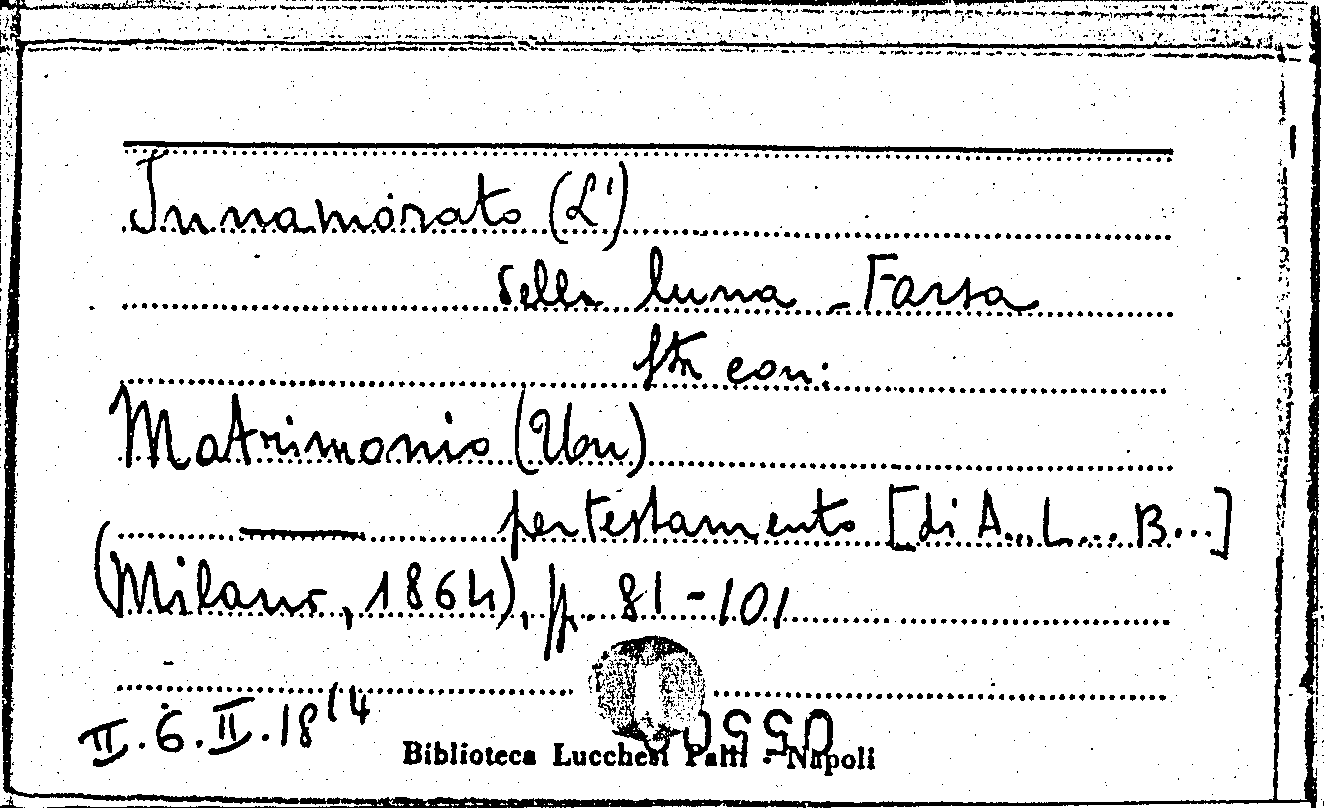 Innamorato (L')
della luna - Farsa
sta con:
Matrimonio (Un)
per testamento [di A... L... B...]
(Milano, 1864), pp. 81-101
II.6.II.18(4
Biblioteca Lucchesi Palli - Napoli